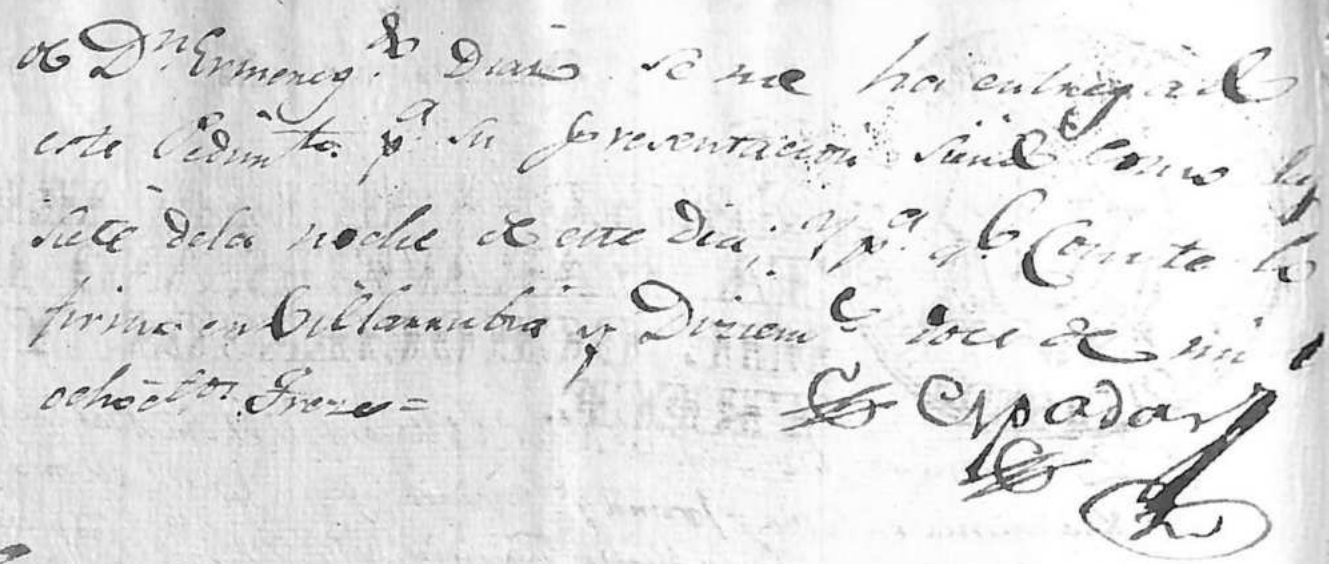 de Dn. Ermeneg.do Diaz se me ha entregado
este Pedimto. pa. su presentacion siendo como las
siete dela noche de este dia; y pa. qe. Conste lo
firmo en Villarrubia y Diziem.e doce de mil
ochoctos. Treze =
Espadas